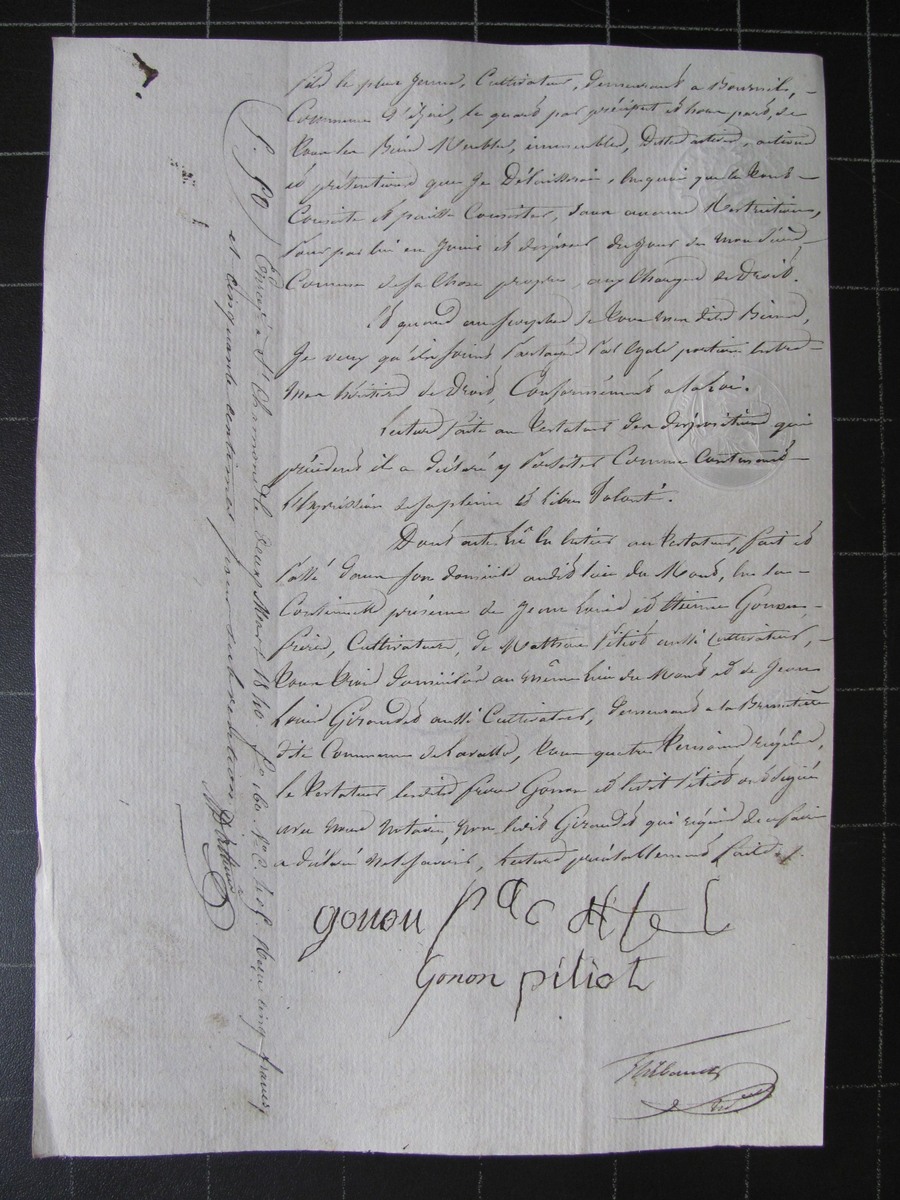 fils le plus jeune, Cultivateur, demeurant a
Commune d'Izieu, le quart par préciput et hors part, de
tous les Biens Meubles, immeubles, Dettes actives, actions
et prétentions que je Délaisserai, en quoi que le tout
Consiste et puisse Consister, sans aucune Restriction,
pour par lui en jouir et disposer du jour de mon décès,
Comme de sa Chose propre, aux Charges de Droit.
Et quant au surplus de tous mes dits Biens,
Je veux qu'ils soient partagés par égale portion entre
mes héritiers de Droit, Conformément a la Loi.
Lecture faite au Testateur des dispositions qui
précèdent il a déclaré y persister Comme Contenant
l'Expression de sa pleine et libre Volonté.
Dont acte lu en entier au Testateur, fait et
passé dans son domicile audit lieu du Mont, en la
Continuelle présence de Jean Louis et Etienne Gonon,
frères, Cultivateurs, de Mathieu Pitiot aussi Cultivateur,
tous trois domiciliés au même lieu du Mont et de Jean
Louis Giraudet aussi Cultivateur, demeurant a la
dite Commune de Lavalla, tous quatre témoins requis,
le Testateur lesdits frères Gonon et ledit Pitiot ont signé
avec nous notaire, non ledit Giraudet qui requis de ce faire
a déclaré ne le savoir, Lecture préalablement faite.
gonon
Gonon pitiot
Enregé à St Chamond le deux Mars 1840. Reçu cinq francs,
et cinquante centimes pour subvention